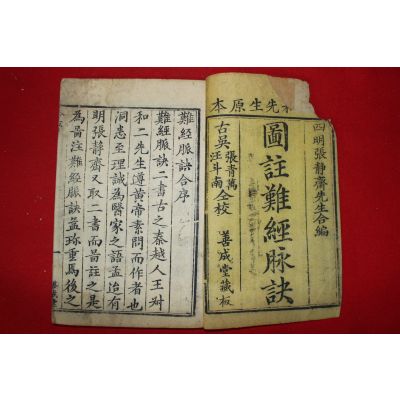 本原生先
四明張靜齋先生合編
圖註難經脉訣
古吳張青萬
汪斗南仝校
善成堂藏板
難經脈訣合序
難經脈訣二書古之秦越人王叔
和二先生遵黄帝素問而作者也
洞悉至理誠為醫家之語孟迨有
明張靜齋又取二書而啚註之是
為啚注難經脈訣益珎重焉後之